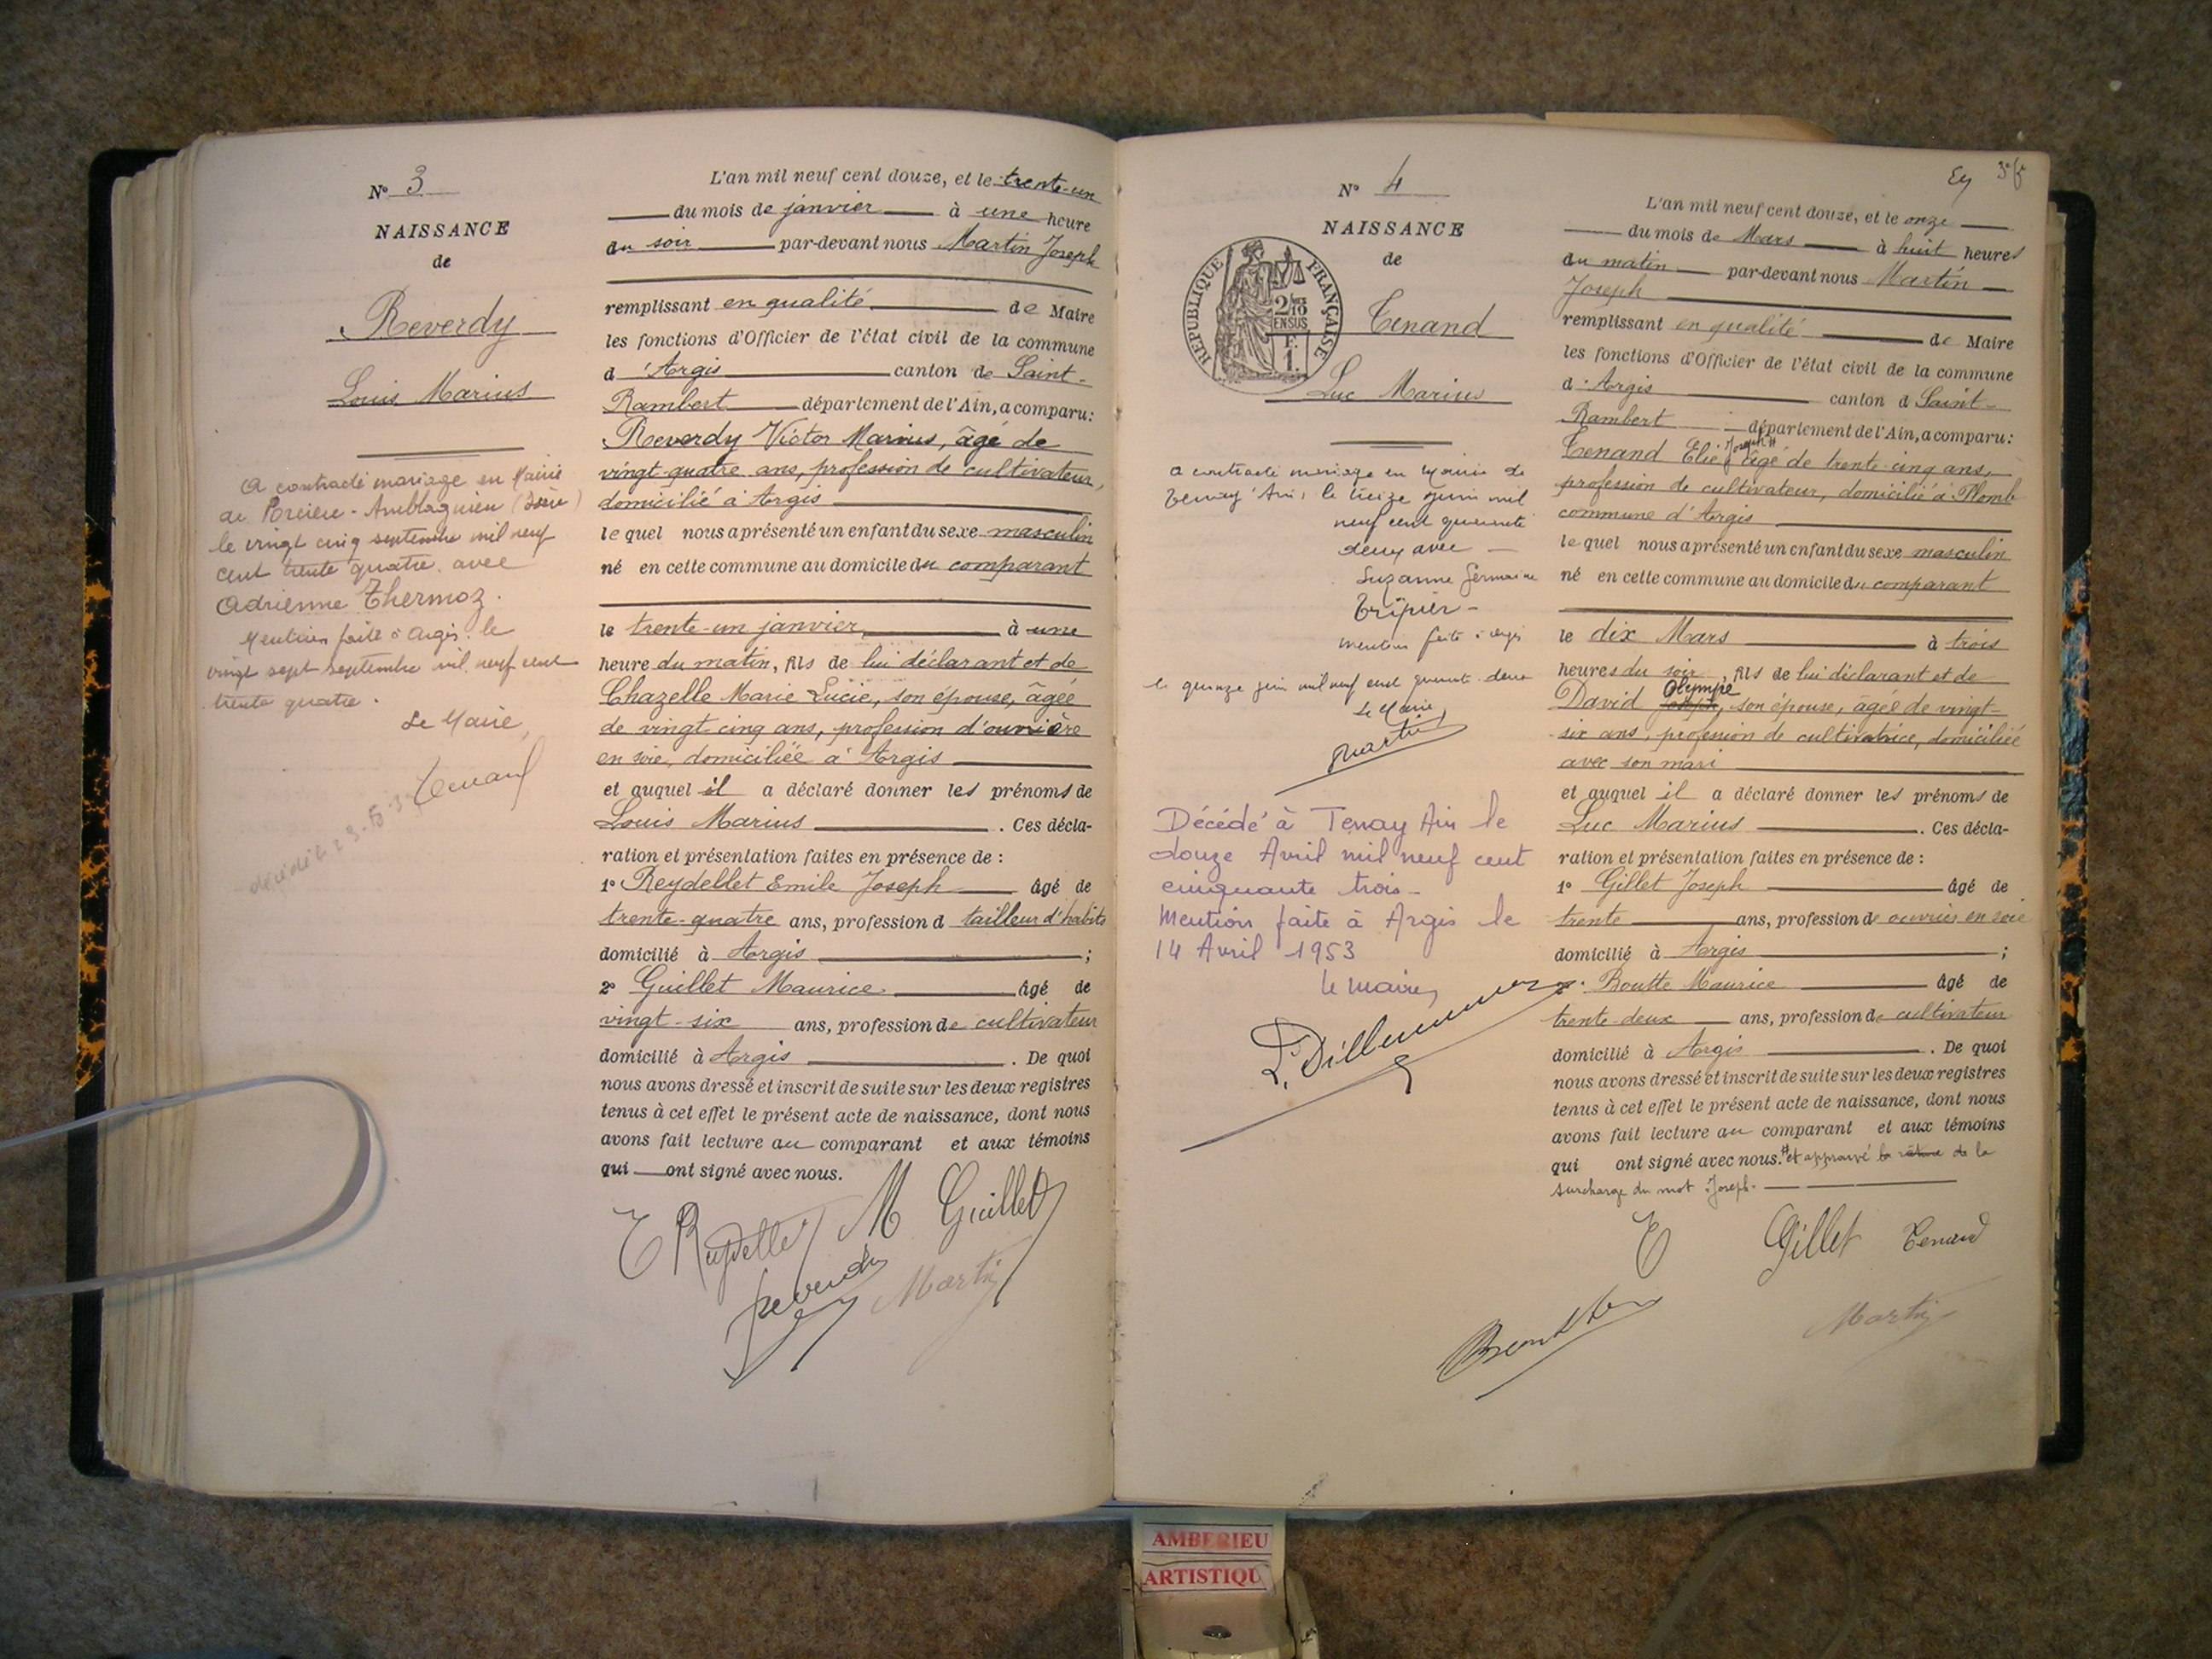 N° 3
NAISSANCE
de
Reverdy
Louis Marius
A contracté mariage en Mairie
de Porcieu-Amblagnieu (Isère)
le vingt cinq septembre mil neuf
cent trente quatre avec
Adrienne Thermoz.
Mention faite à Argis le
vingt sept septembre mil neuf cent
trente quatre.
Le Maire,
Tenand
décédé le 23
L'an mil neuf cent douze, et le trente-un
du mois de janvier à une heure
du soir par-devant nous Martin Joseph
remplissant en qualité de Maire
les fonctions d'Officier de l'état civil de la commune
d'Argis canton de Saint-
Rambert département de l'Ain, a comparu:
Reverdy Victor Marius, âgé de
vingt-quatre ans, profession de cultivateur,
domicilié à Argis
lequel nous a présenté un enfant du sexe masculin
né en cette commune au domicile du comparant
le trente-un janvier à une
heure du matin, fils de lui déclarant et de
Chazelle Marie Lucie, son épouse, âgée
de vingt-cinq ans, profession d'ouvrière
en soie, domiciliée à Argis
et auquel il a déclaré donner les prénoms de
Louis Marius. Ces décla-
ration et présentation faites en présence de :
1° Reydellet Emile Joseph âgé de
trente-quatre ans, profession d tailleur d'habits
domicilié à Argis ;
2° Guillet Maurice âgé de
vingt-six ans, profession de cultivateur
domicilié à Argis. De quoi
nous avons dressé et inscrit de suite sur les deux registres
tenus à cet effet le présent acte de naissance, dont nous
avons fait lecture au comparant et aux témoins
qui ont signé avec nous.
E Reydellet M Guillet
Reverdy Martin
Ey 3e f
N° 4
NAISSANCE
de
REPUBLIQUE FRANÇAISE
2/10 EN SUS
F. 1.
Tenand
Luc Marius
a contracté mariage en Mairie de
Tenay Ain, le treize Juin mil
neuf cent quarante
deux avec
Suzanne Germaine
Tripier -
mention faite à Argis
le quinze juin mil neuf cent quarante deux
Le Maire,
Martin
Décédé à Tenay Ain le
douze Avril mil neuf cent
cinquante trois -
Mention faite à Argis le
14 Avril 1953
le maire,
L'an mil neuf cent douze, et le onze
du mois de Mars à huit heures
du matin par-devant nous Martin
Joseph
remplissant en qualité de Maire
les fonctions d'Officier de l'état civil de la commune
d'Argis canton d Saint-
Rambert département de l'Ain, a comparu:
Tenand Elie Joseph # âgé de trente-cinq ans,
profession de cultivateur, domicilié à Plomb
commune d'Argis
lequel nous a présenté un enfant du sexe masculin
né en cette commune au domicile du comparant
le dix Mars à trois
heures du soir, fils de lui déclarant et de
David Olympe Joseph, son épouse, âgée de vingt-
six ans, profession de cultivatrice, domiciliée
avec son mari
et auquel il a déclaré donner les prénoms de
Luc Marius. Ces décla-
ration et présentation faites en présence de :
1° Gillet Joseph âgé de
trente ans, profession de ouvrier en soie
domicilié à Argis ;
2° Boutte Maurice âgé de
trente-deux ans, profession de cultivateur
domicilié à Argis. De quoi
nous avons dressé et inscrit de suite sur les deux registres
tenus à cet effet le présent acte de naissance, dont nous
avons fait lecture au comparant et aux témoins
qui ont signé avec nous. # et approuvé la rature de la
surcharge du mot Joseph.
E Gillet Tenand
Boutte Martin
AMBERIEU
ARTISTIQU